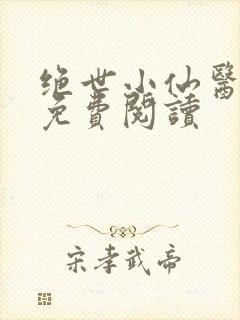 绝世小仙醫
免費閱讀
宋孝武帝